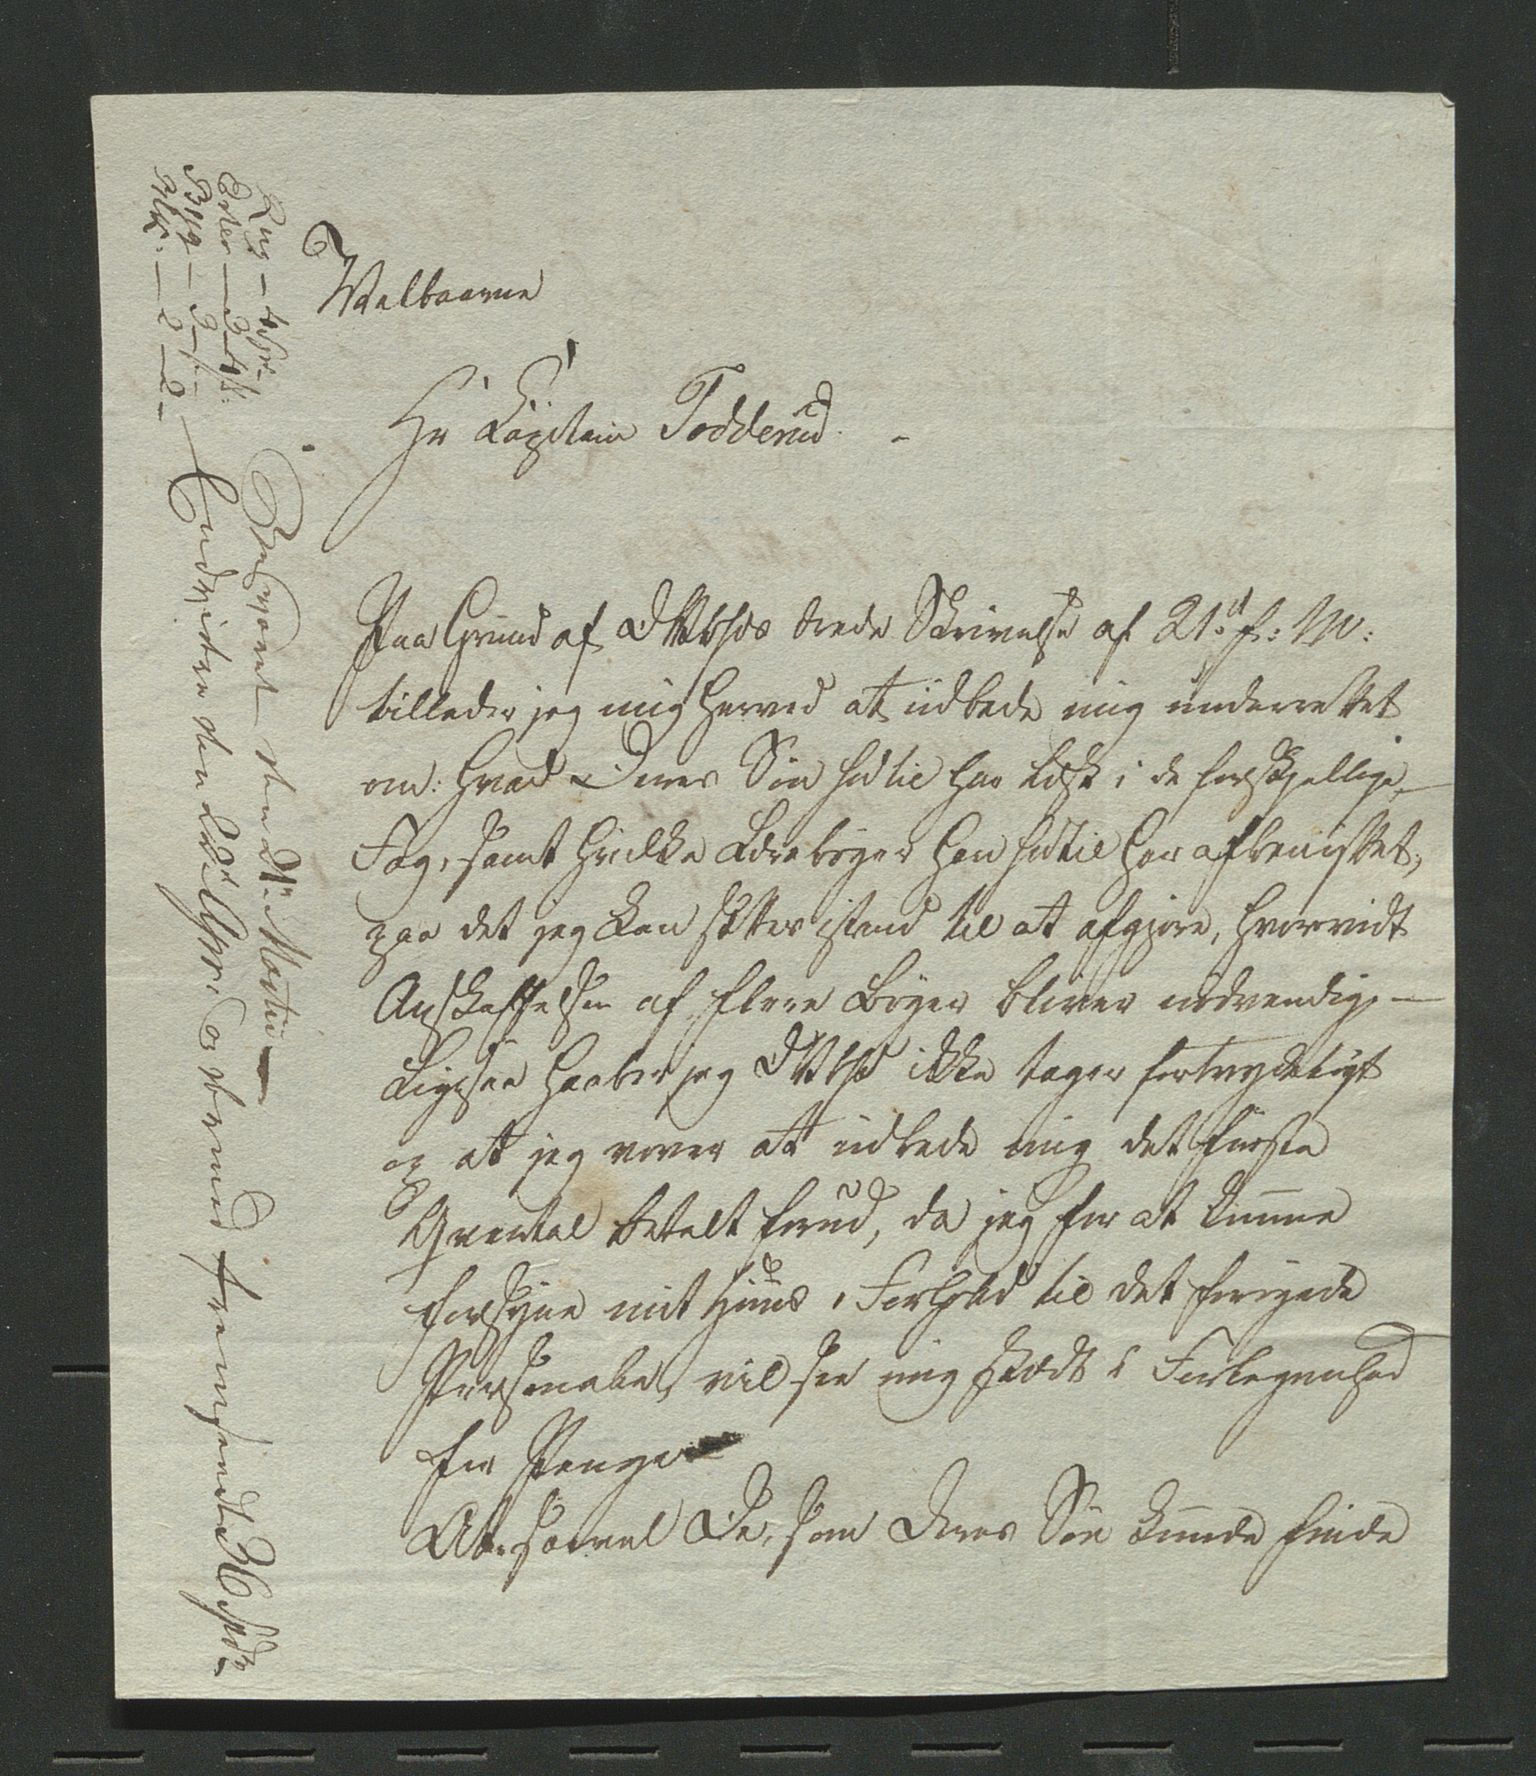 Welbaarne
Hr Capitain Todderud. -
Paa Grund af DWbhds ærede Skrivelse af 21.d f: M:
tillader jeg mig herved at udbede mig underrettet
om: hvad Deres Søn hidtil har læst i de forskjellige
Fag, samt hvilke Lærebøger han hidtil har afbenyttet,
paa det jeg kan sættes istand til at afgjøre, hvorvidt
Anskaffelsen af flere Bøger bliver nødvendig. —
Ligesaa haaber jeg DWbhd ikke tager fortrydeligt
op at jeg vover at udbede mig det første
Qvartal betalt forud, da jeg for at kunne
forsyne mit Huus i Forhold til det forøgede
Personale, vil see mig sadt i Forlegenhed
for Penge
At saavel De, som Deres Søn kunde finde
Rug — 4
Byg —
Besvaret den Martii —